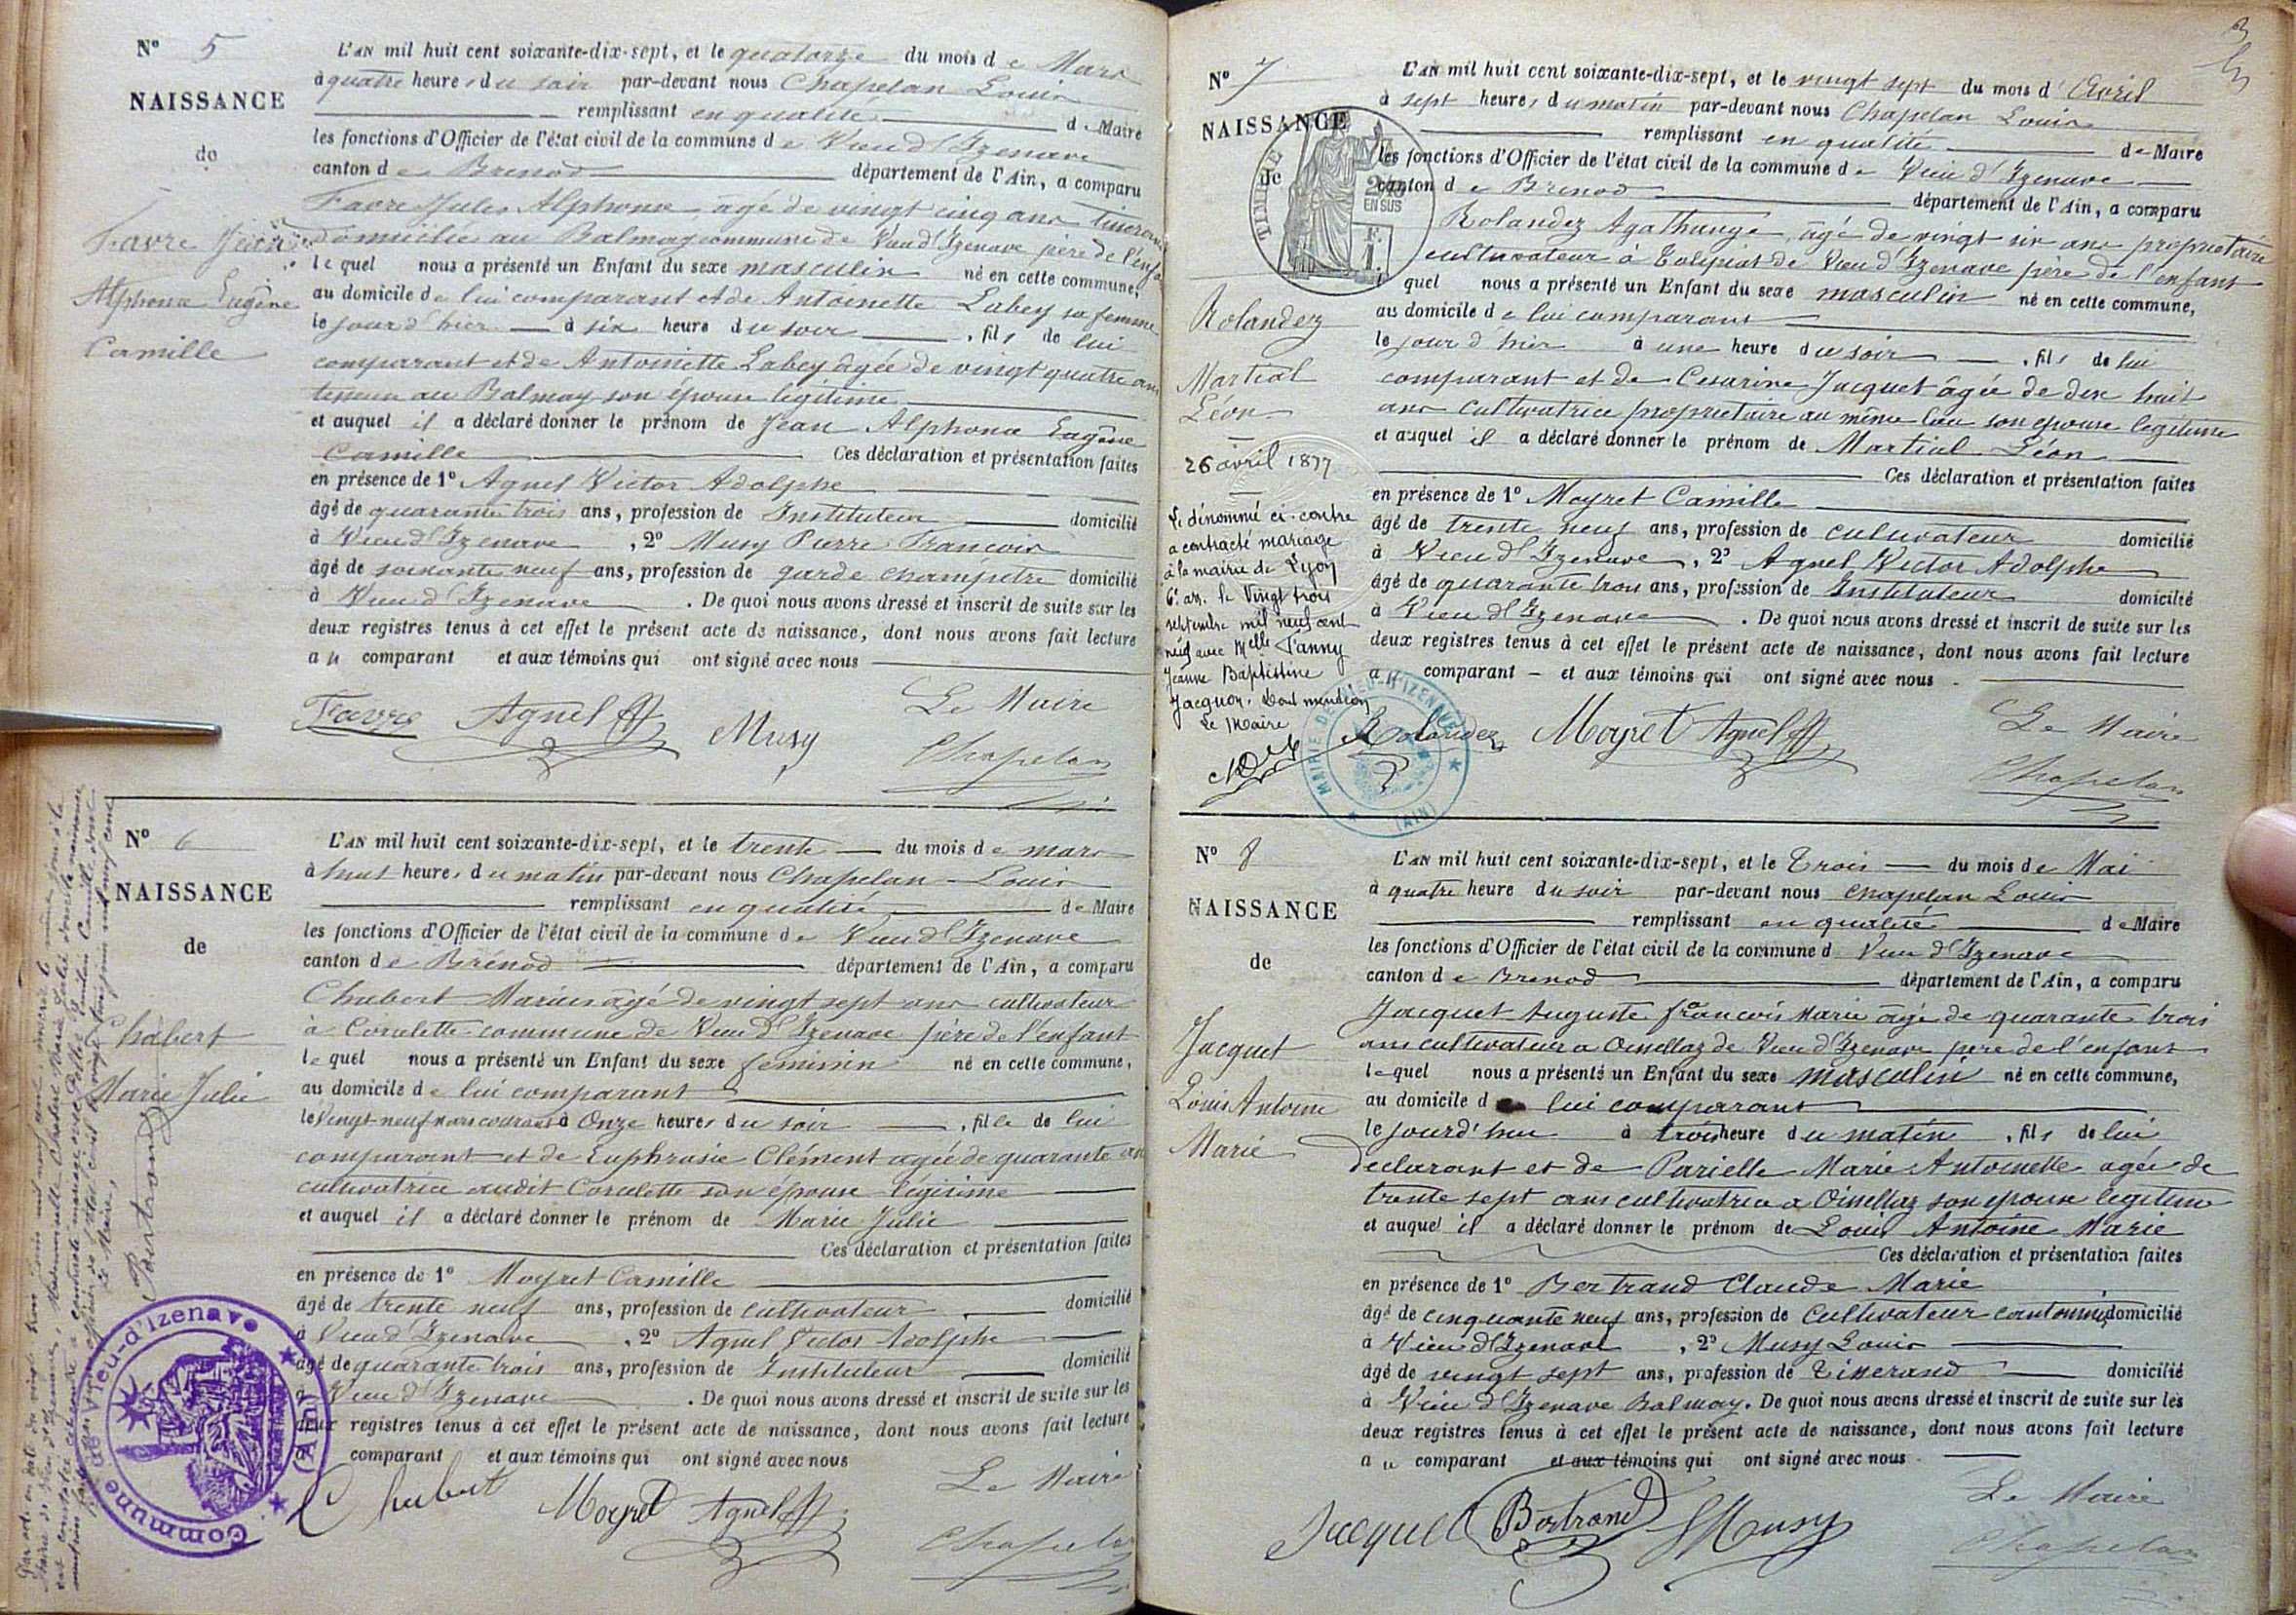 Nº 5
NAISSANCE
de
Favre Jean
Alphonse Eugène
Camille
L'AN mil huit cent soixante-dix-sept, et le quatorze du mois de Mars
à quatre heures du soir par-devant nous Chapelan Louis
remplissant en qualité de Maire
les fonctions d'Officier de l'état civil de la commune de Vieu d'Izenave
canton de Brenod département de l'Ain, a comparu
Favre Jules Alphonse agé de vingt cinq ans
domicilié au Balmay commune de Vieu d'Izenave père de l'enfa
lequel nous a présenté un Enfant du sexe masculin né en cette commune,
au domicile de lui comparant et de Antoinette Labey sa femme
le jour d'hier à six heure du soir , fils de lui
comparant et de Antoinette Labey agée de vingt quatre ans
au Balmay son épouse légitime
et auquel il a déclaré donner le prénom de Jean Alphonse Eugène
Camille Ces déclaration et présentation faites
en présence de 1º Agnel Victor Adolphe
âgé de quarante trois ans, profession de Instituteur domicilié
à Vieu d'Izenave , 2º Musy Pierre François
âgé de soixante neuf ans, profession de garde champetre domicilié
à Vieu d'Izenave . De quoi nous avons dressé et inscrit de suite sur les
deux registres tenus à cet effet le présent acte de naissance, dont nous avons fait lecture
au comparant et aux témoins qui ont signé avec nous
Favre Agnel Musy Le Maire
Chapelan
Nº 6
NAISSANCE
de
Chabert
Marie Julie
L'AN mil huit cent soixante-dix-sept, et le trente du mois de mars
à huit heures du matin par-devant nous Chapelan Louis
remplissant en qualité de Maire
les fonctions d'Officier de l'état civil de la commune de Vieu d'Izenave
canton de Brénod département de l'Ain, a comparu
Chabert Marius agé de vingt sept ans cultivateur
à Corcelette commune de Vieu d'Izenave père de l'enfant
lequel nous a présenté un Enfant du sexe féminin né en cette commune,
au domicile de lui comparant
le Vingt neuf mars courant à Onze heures du soir , fille de lui
comparant et de Euphrasie Clément agée de quarante an
cultivatrice audit Corcelette son épouse légitime
et auquel il a déclaré donner le prénom de Marie Julie
Ces déclaration et présentation faites
en présence de 1º Moyret Camille
âgé de trente neuf ans, profession de cultivateur domicilié
à Vieu d'Izenave , 2º Agnel Victor Adolphe
âgé de quarante trois ans, profession de Instituteur domicilié
à Vieu d'Izenave . De quoi nous avons dressé et inscrit de suite sur les
deux registres tenus à cet effet le présent acte de naissance, dont nous avons fait lecture
au comparant et aux témoins qui ont signé avec nous
Chabert Moyret Agnel Le Maire
Chapelan
Le Maire,
Bertrand
Commune de Vieu-d'Izenave
(Ain)
Nº 7
NAISSANCE
de
TIMBRE
2/10
EN SUS
Rolandez
Martial
Léon
26 avril 1877
Le dénommé ci-contre
a contracté mariage
à la mairie de Lyon
6e ar. le Vingt trois
septembre mil neuf cent
neuf avec Melle Fanny
Jeanne Baptistine
Jacquor. Dont mention
Le Maire
MAIRIE DE VIEU-D'IZENAVE
(AIN)
L'AN mil huit cent soixante-dix-sept, et le vingt sept du mois d'Avril
à sept heures du matin par-devant nous Chapelan Louis
remplissant en qualité de Maire
les fonctions d'Officier de l'état civil de la commune de Vieu d'Izenave
canton de Brenod département de l'Ain, a comparu
Rolandez Agathange, agé de vingt six ans propriétaire
cultivateur à de Vieu d'Izenave père de l'enfant
quel nous a présenté un Enfant du sexe masculin né en cette commune,
au domicile de lui comparant
le jour d'hier à une heure du soir , fils de lui
comparant et de Cesarine Jacquet âgée de dix huit
ans cultivatrice propriétaire au même lieu son épouse légitime
et auquel il a déclaré donner le prénom de Martial Léon
Ces déclaration et présentation faites
en présence de 1º Moyret Camille
âgé de trente neuf ans, profession de cultivateur domicilié
à Vieu d'Izenave , 2º Agnel Victor Adolphe
âgé de quarante trois ans, profession de Instituteur domicilié
à Vieu d'Izenave . De quoi nous avons dressé et inscrit de suite sur les
deux registres tenus à cet effet le présent acte de naissance, dont nous avons fait lecture
au comparant et aux témoins qui ont signé avec nous
Rolandez Moyret Agnel Le Maire
Chapelan
Nº 8
NAISSANCE
de
Jacquet
Louis Antoine
Marie
L'AN mil huit cent soixante-dix-sept, et le Trois du mois de Mai
à quatre heure du soir par-devant nous Chapelan Louis
remplissant en qualité de Maire
les fonctions d'Officier de l'état civil de la commune d Vieu d'Izenave
canton de Brenod département de l'Ain, a comparu
Jacquet Auguste françois Marie âgé de quarante trois
ans cultivateur a Oisellaz de Vieu d'Izenave père de l'enfant
lequel nous a présenté un Enfant du sexe masculin né en cette commune,
au domicile de lui comparant
le jourd'hui à trois heure du matin , fils de lui
declarant et de Parielle Marie Antoinette agée de
trente sept ans cultivatrice a Oisellaz son épouse legitime
et auquel il a déclaré donner le prénom de Louis Antoine Marie
Ces déclaration et présentation faites
en présence de 1º Bertrand Claude Marie
âgé de cinquante neuf ans, profession de Cultivateur domicilié
à Vieu d'Izenave , 2º Musy Louis
âgé de vingt sept ans, profession de Tisserand domicilié
à Vieu d'Izenave Balmay. De quoi nous avons dressé et inscrit de suite sur les
deux registres tenus à cet effet le présent acte de naissance, dont nous avons fait lecture
au comparant et aux témoins qui ont signé avec nous
Jacquet Bertrand Musy Le Maire
Chapelan